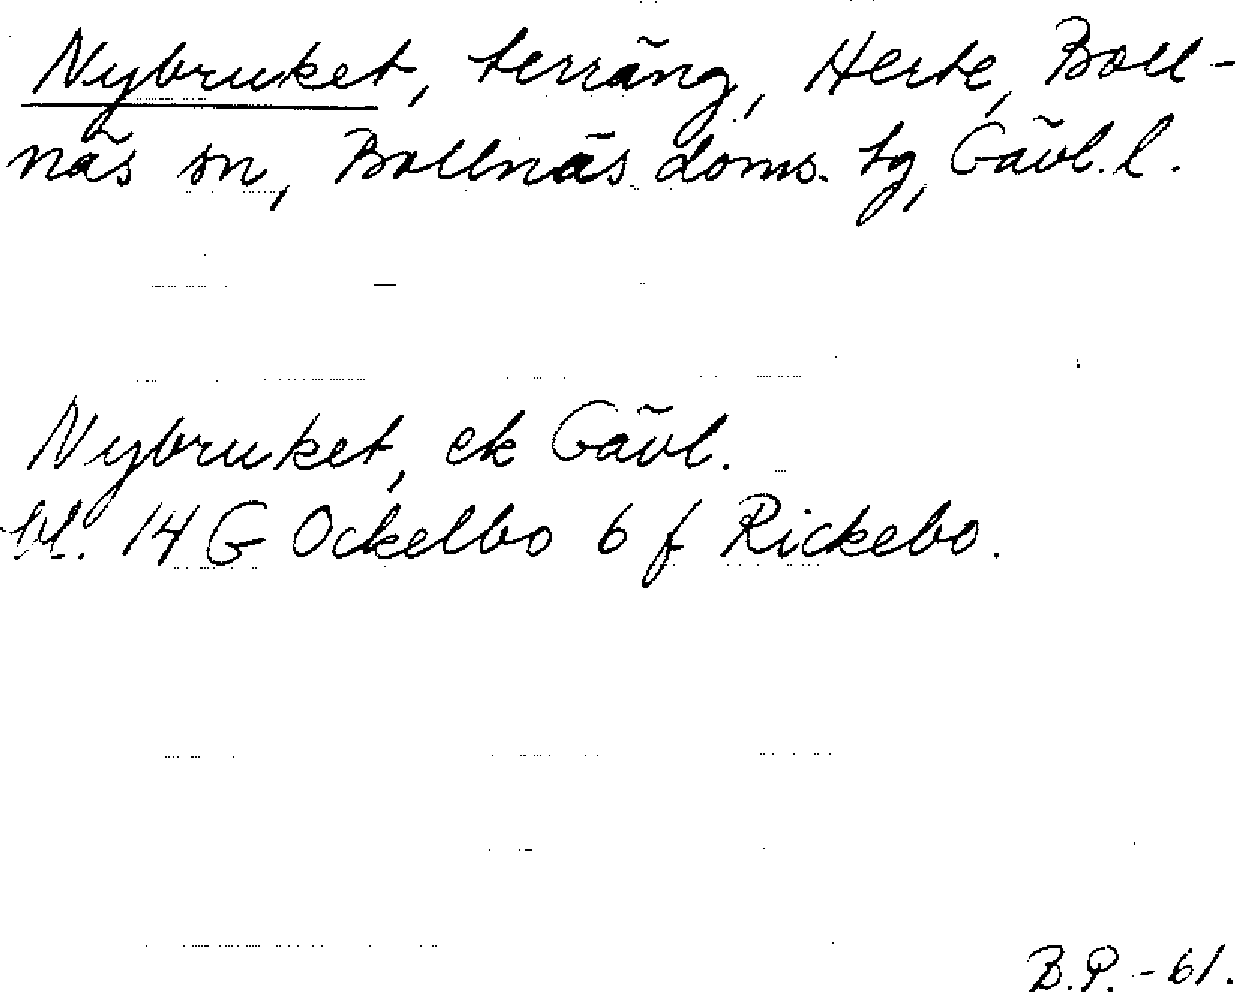 Nybruket, terräng, Herte, Boll-
näs sn, Bollnäs doms. tg, Gävl. l.
Nybruket, ek Gävl.
bl. 14 G Ockelbo 6 f Rickebo.
B.P. - 61.